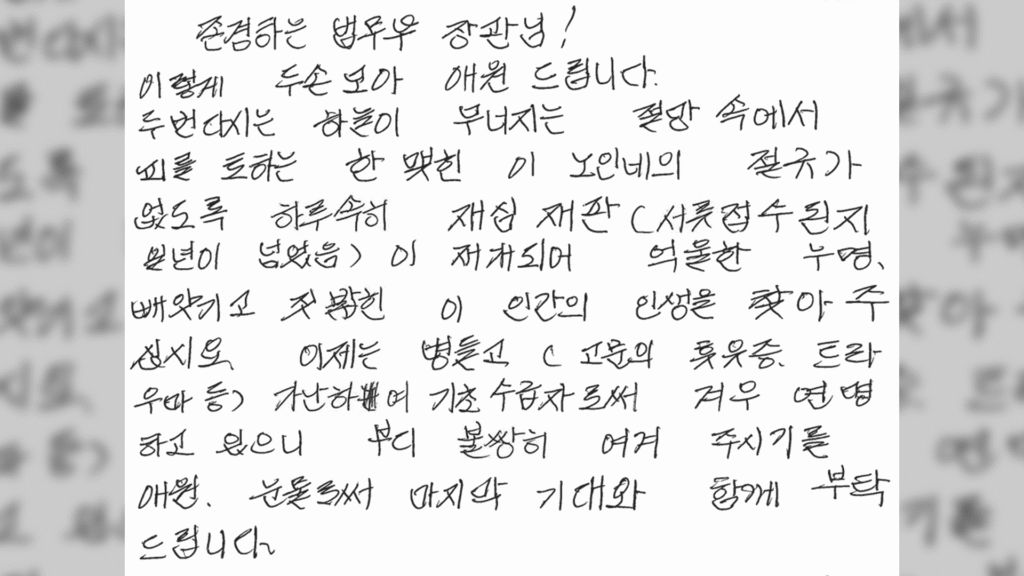 존경하는 법무부 장관님!
이렇게 두손 모아 애원 드립니다.
두번다시는 하늘이 무너지는 절망 속에서
피를 토하는 한 맺힌 이 노인네의 절규가
없도록 하루속히 재심 재판 (서류접수된지
일년이 넘었음) 이 재개되어 억울한 누명,
빼앗기고 짓밟힌 이 인간의 인생을 찾아 주
십시오. 이제는 병들고 ( 고문의 후유증. 트라
우마 등) 가난하여 기초 수급자로써 겨우 연명
하고 있으니 부디 불쌍히 여겨 주시기를
애원. 눈물로써 마지막 기대와 함께 부탁
드립니다.